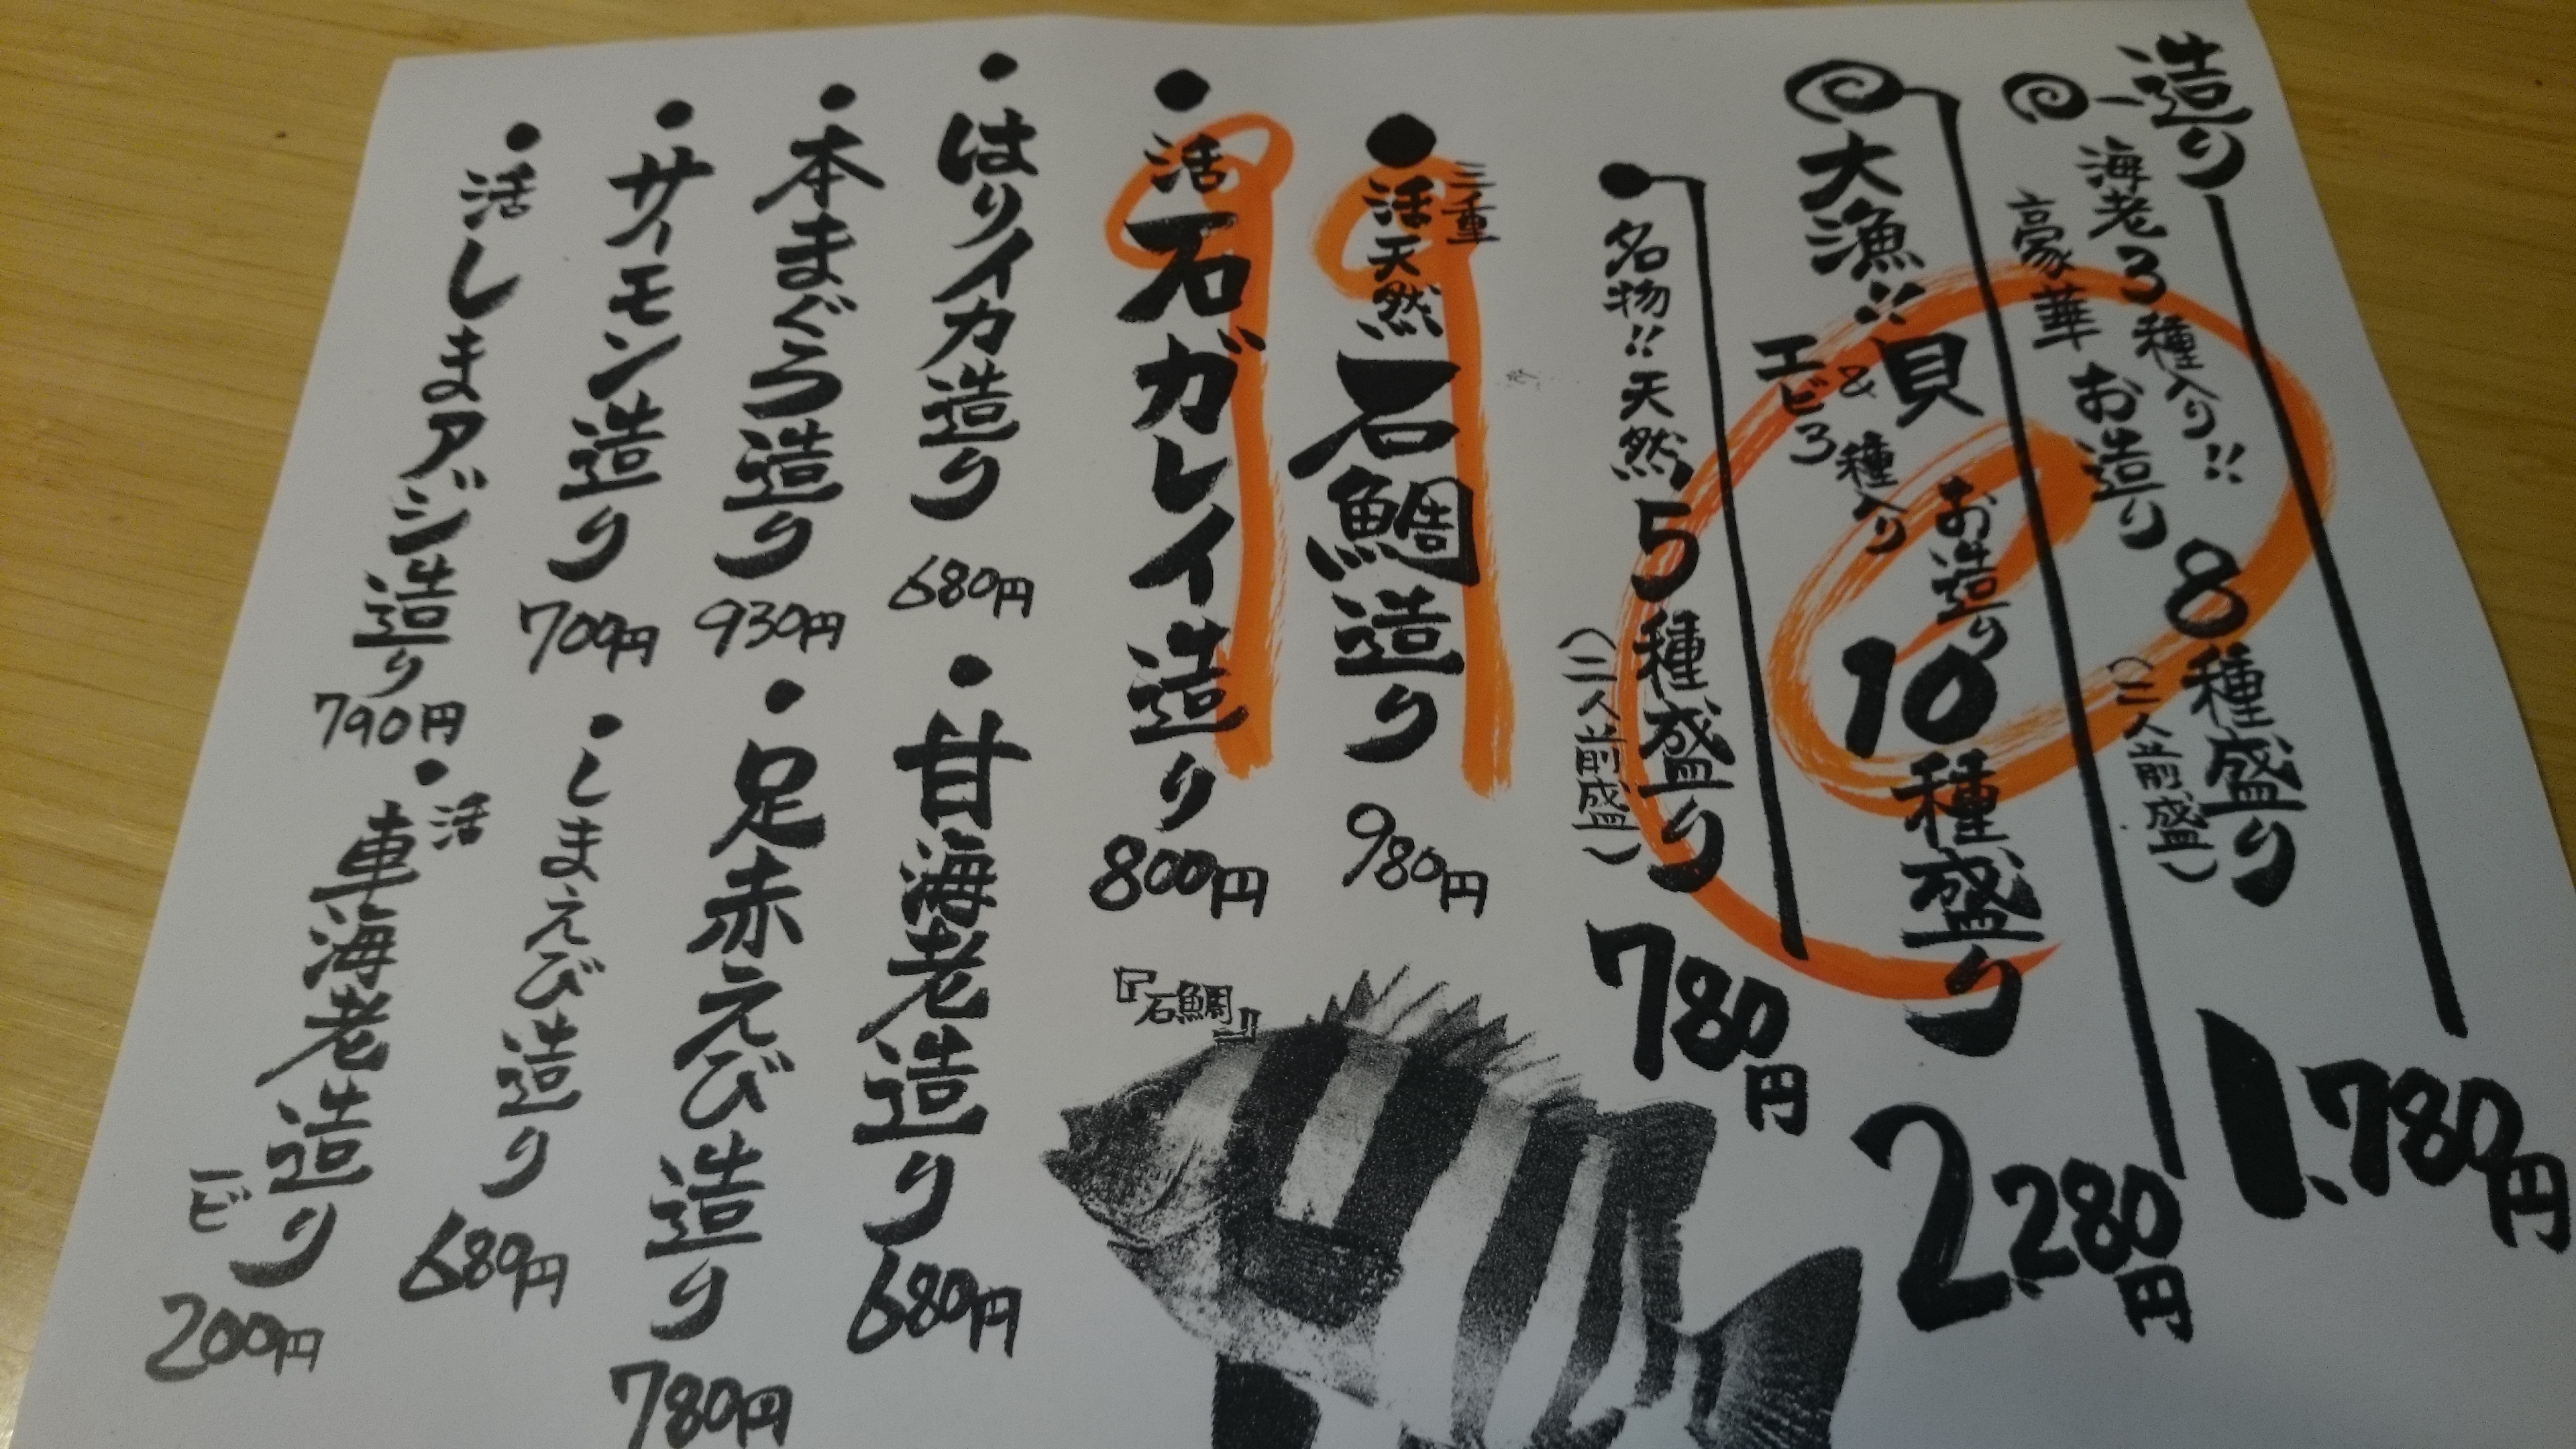 造り
海老3種入り!!
豪華 お造り 8種盛り
(二人前盛)
1,780円
大漁!! 貝
&
エビ3種入り
お造り 10種盛り
2,280円
名物!! 天然 5種盛り
(二人前盛)
780円
三重
活天然 石鯛造り 980円
活 石ガレイ造り 800円
『石鯛』
はりイカ造り 680円
甘海老造り 680円
本まぐろ造り 930円
足赤えび造り 780円
サーモン造り 700円
しまえび造り 680円
活しまアジ造り 790円
活
車海老造り
一ビ
200円